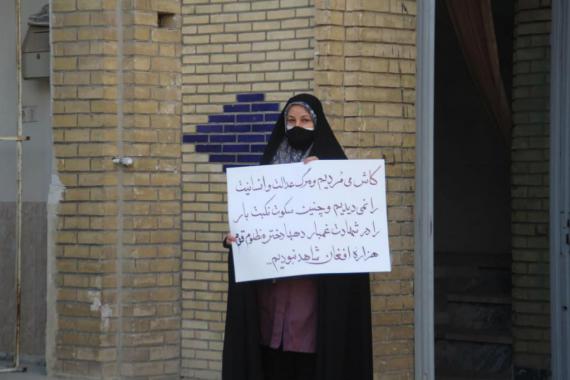 کاش می مُردیم و مرگ عدالت و انسانیت
را نمی دیدیم و چنین سکوت نکبت بار
را در شهادت غمبار دهها دختر مظلوم قوم
هزاره افغان شاهد نبودیم...